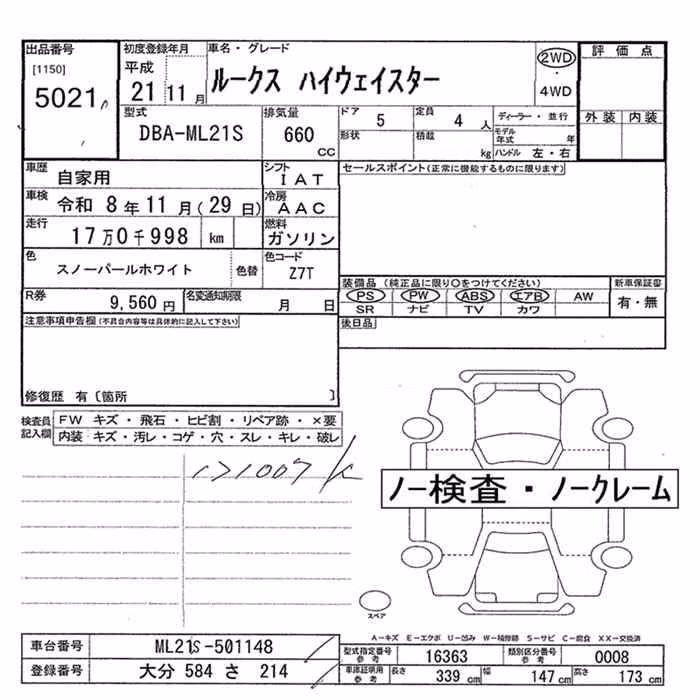 出品番号 初度登録年月 車名・グレード 評価点
[1150] 平成 ルークス ハイウェイスター 2WD
5021 21 11 月 ・ 4WD
外装 内装
型式 排気量 ドア 5 定員 4 人 ディーラー・並行
DBA-ML21S 660 CC 形状 積載 kg モデル年式 年
ハンドル 左・右
車歴 自家用 シフト IAT セールスポイント(正常に機能するものに限ります)
車検 令和 8 年 11 月 ( 29 日) 冷房 AAC
走行 17 万 0 千 998 km 燃料 ガソリン
色 スノーパールホワイト 色替 色コード Z7T
装備品 (純正品に限り○をつけてください) 新車保証書
R券 9,560 円 名変通知期限 月 日 PS PW ABS エアB AW 有・無
SR ナビ TV カワ
注意事項申告欄(不具合内容等は具体的に記入して下さい) 後日品
修復歴 有〔箇所 〕
検査員記入欄 FW キズ・飛石・ヒビ割・リペア跡・×要
内装 キズ・汚レ・コゲ・穴・スレ・キレ・破レ
ノー検査・ノークレーム
スペア
A-キズ E-エクボ U-凹み W-補修跡 S-サビ C-腐食 XX-交換済
車台番号 ML21S-501148 型式指定番号 参考 16363 類別区分番号 参考 0008
登録番号 大分 584 さ 214 車庫証明用 参考 長さ 339 cm 幅 147 cm 高さ 173 cm